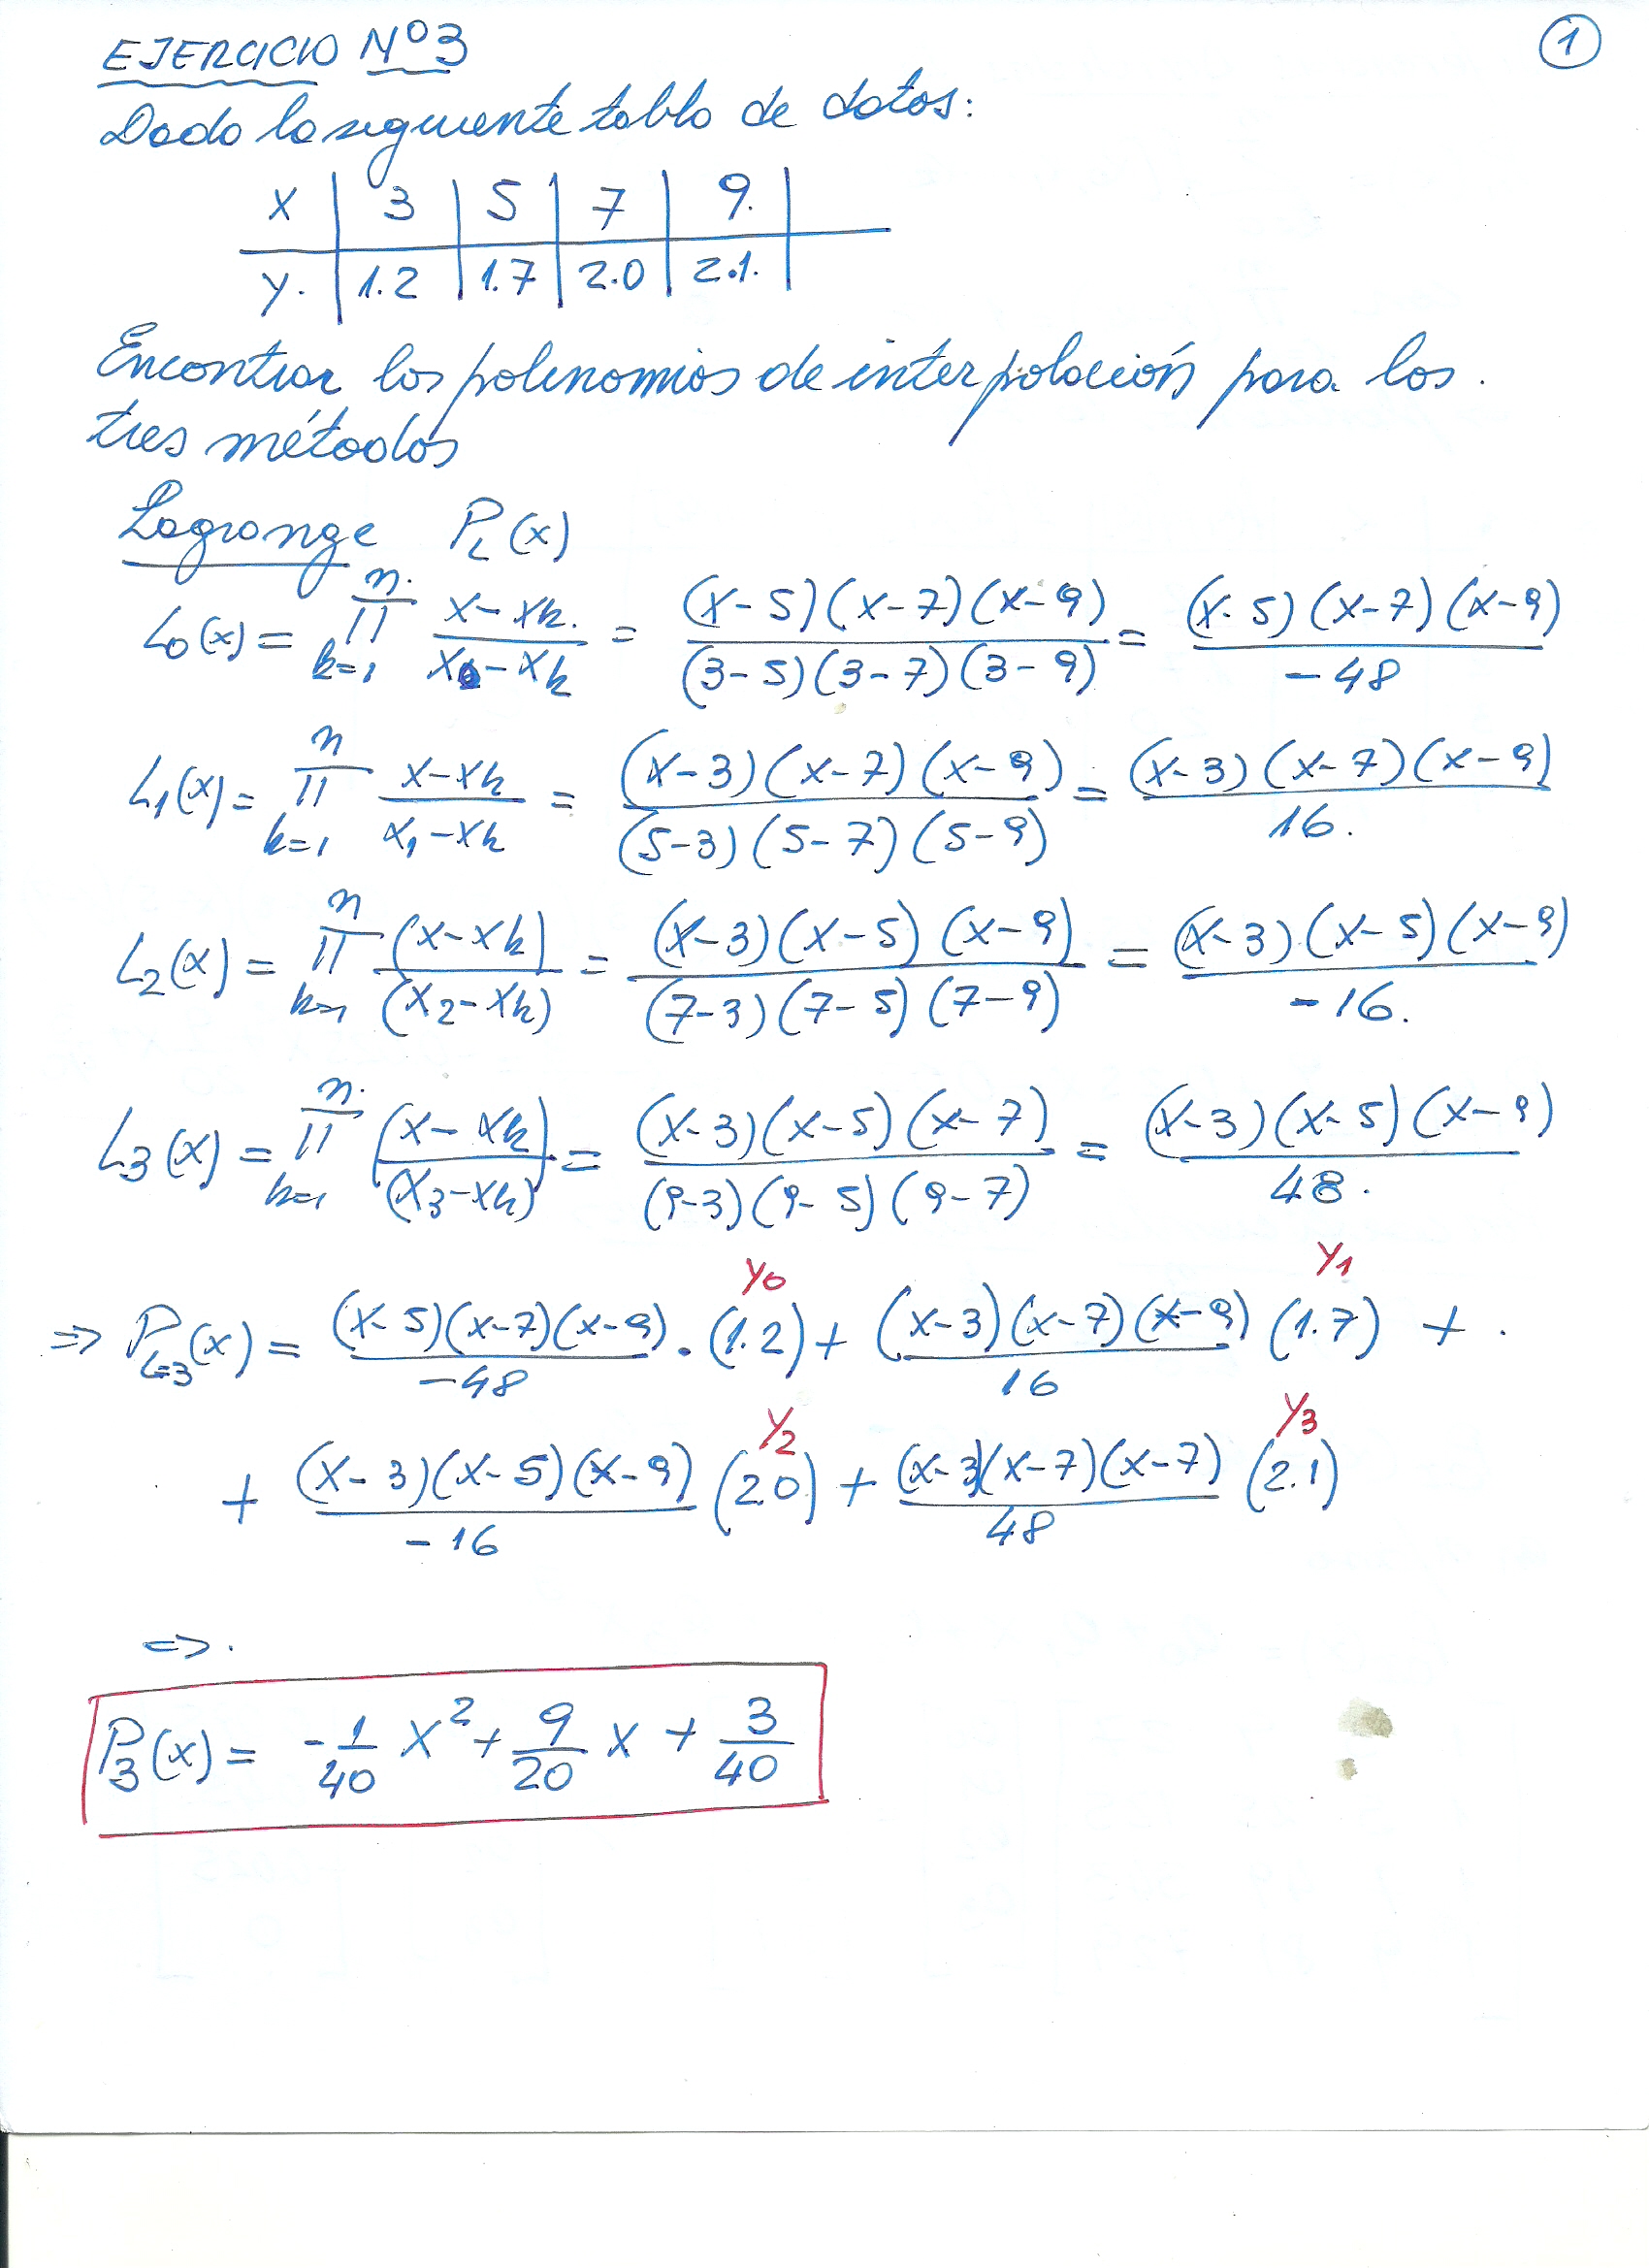 EJERCICIO Nº3
1
Dada la siguiente tabla de datos:
x | 3 | 5 | 7 | 9.
y. | 1.2 | 1.7 | 2.0 | 2.1.
Encontrar los polinomios de interpolación para los.
tres métodos
Lagrange P_L(x)
L_0(x) = ∏_{k=1}^{n.} (x-x_k.)/(x_0-x_k) = (x-5)(x-7)(x-9)/((3-5)(3-7)(3-9)) = (x-5)(x-7)(x-9)/(-48)
L_1(x) = ∏_{k=1}^{n} (x-x_k)/(x_1-x_k) = (x-3)(x-7)(x-9)/((5-3)(5-7)(5-9)) = (x-3)(x-7)(x-9)/16.
L_2(x) = ∏_{k=1}^{n} (x-x_k)/(x_2-x_k) = (x-3)(x-5)(x-9)/((7-3)(7-5)(7-9)) = (x-3)(x-5)(x-9)/(-16.)
L_3(x) = ∏_{k=1}^{n.} (x-x_k)/(x_3-x_k) = (x-3)(x-5)(x-7)/((9-3)(9-5)(9-7)) = (x-3)(x-5)(x-9)/48.
y_0 y_1
⇒ P_{L=3}(x) = (x-5)(x-7)(x-9)/(-48) . (1.2) + (x-3)(x-7)(x-9)/16 (1.7) + .
y_2 y_3
+ (x-3)(x-5)(x-9)/(-16) (2.0) + (x-3)(x-7)(x-7)/48 (2.1)
⇒.
P_3(x) = -1/40 x² + 9/20 x + 3/40